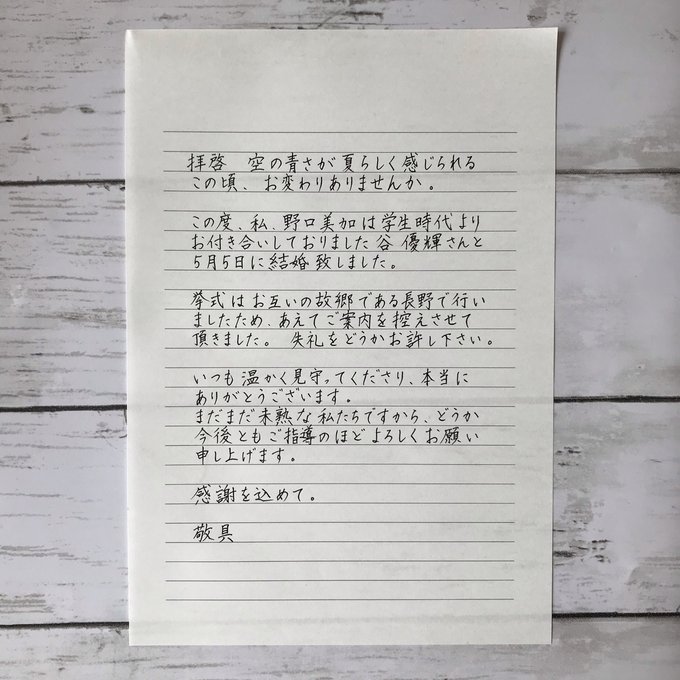 拝啓　空の青さが夏らしく感じられる
この頃、お変わりありませんか。
この度、私、野口美加は学生時代より
お付き合いしておりました谷 優輝さんと
5月5日に結婚致しました。
挙式はお互いの故郷である長野で行い
ましたため、あえてご案内を控えさせて
頂きました。 失礼をどうかお許し下さい。
いつも温かく見守ってくださり、本当に
ありがとうございます。
まだまだ未熟な私たちですから、どうか
今後ともご指導のほどよろしくお願い
申し上げます。
感謝を込めて。
敬具